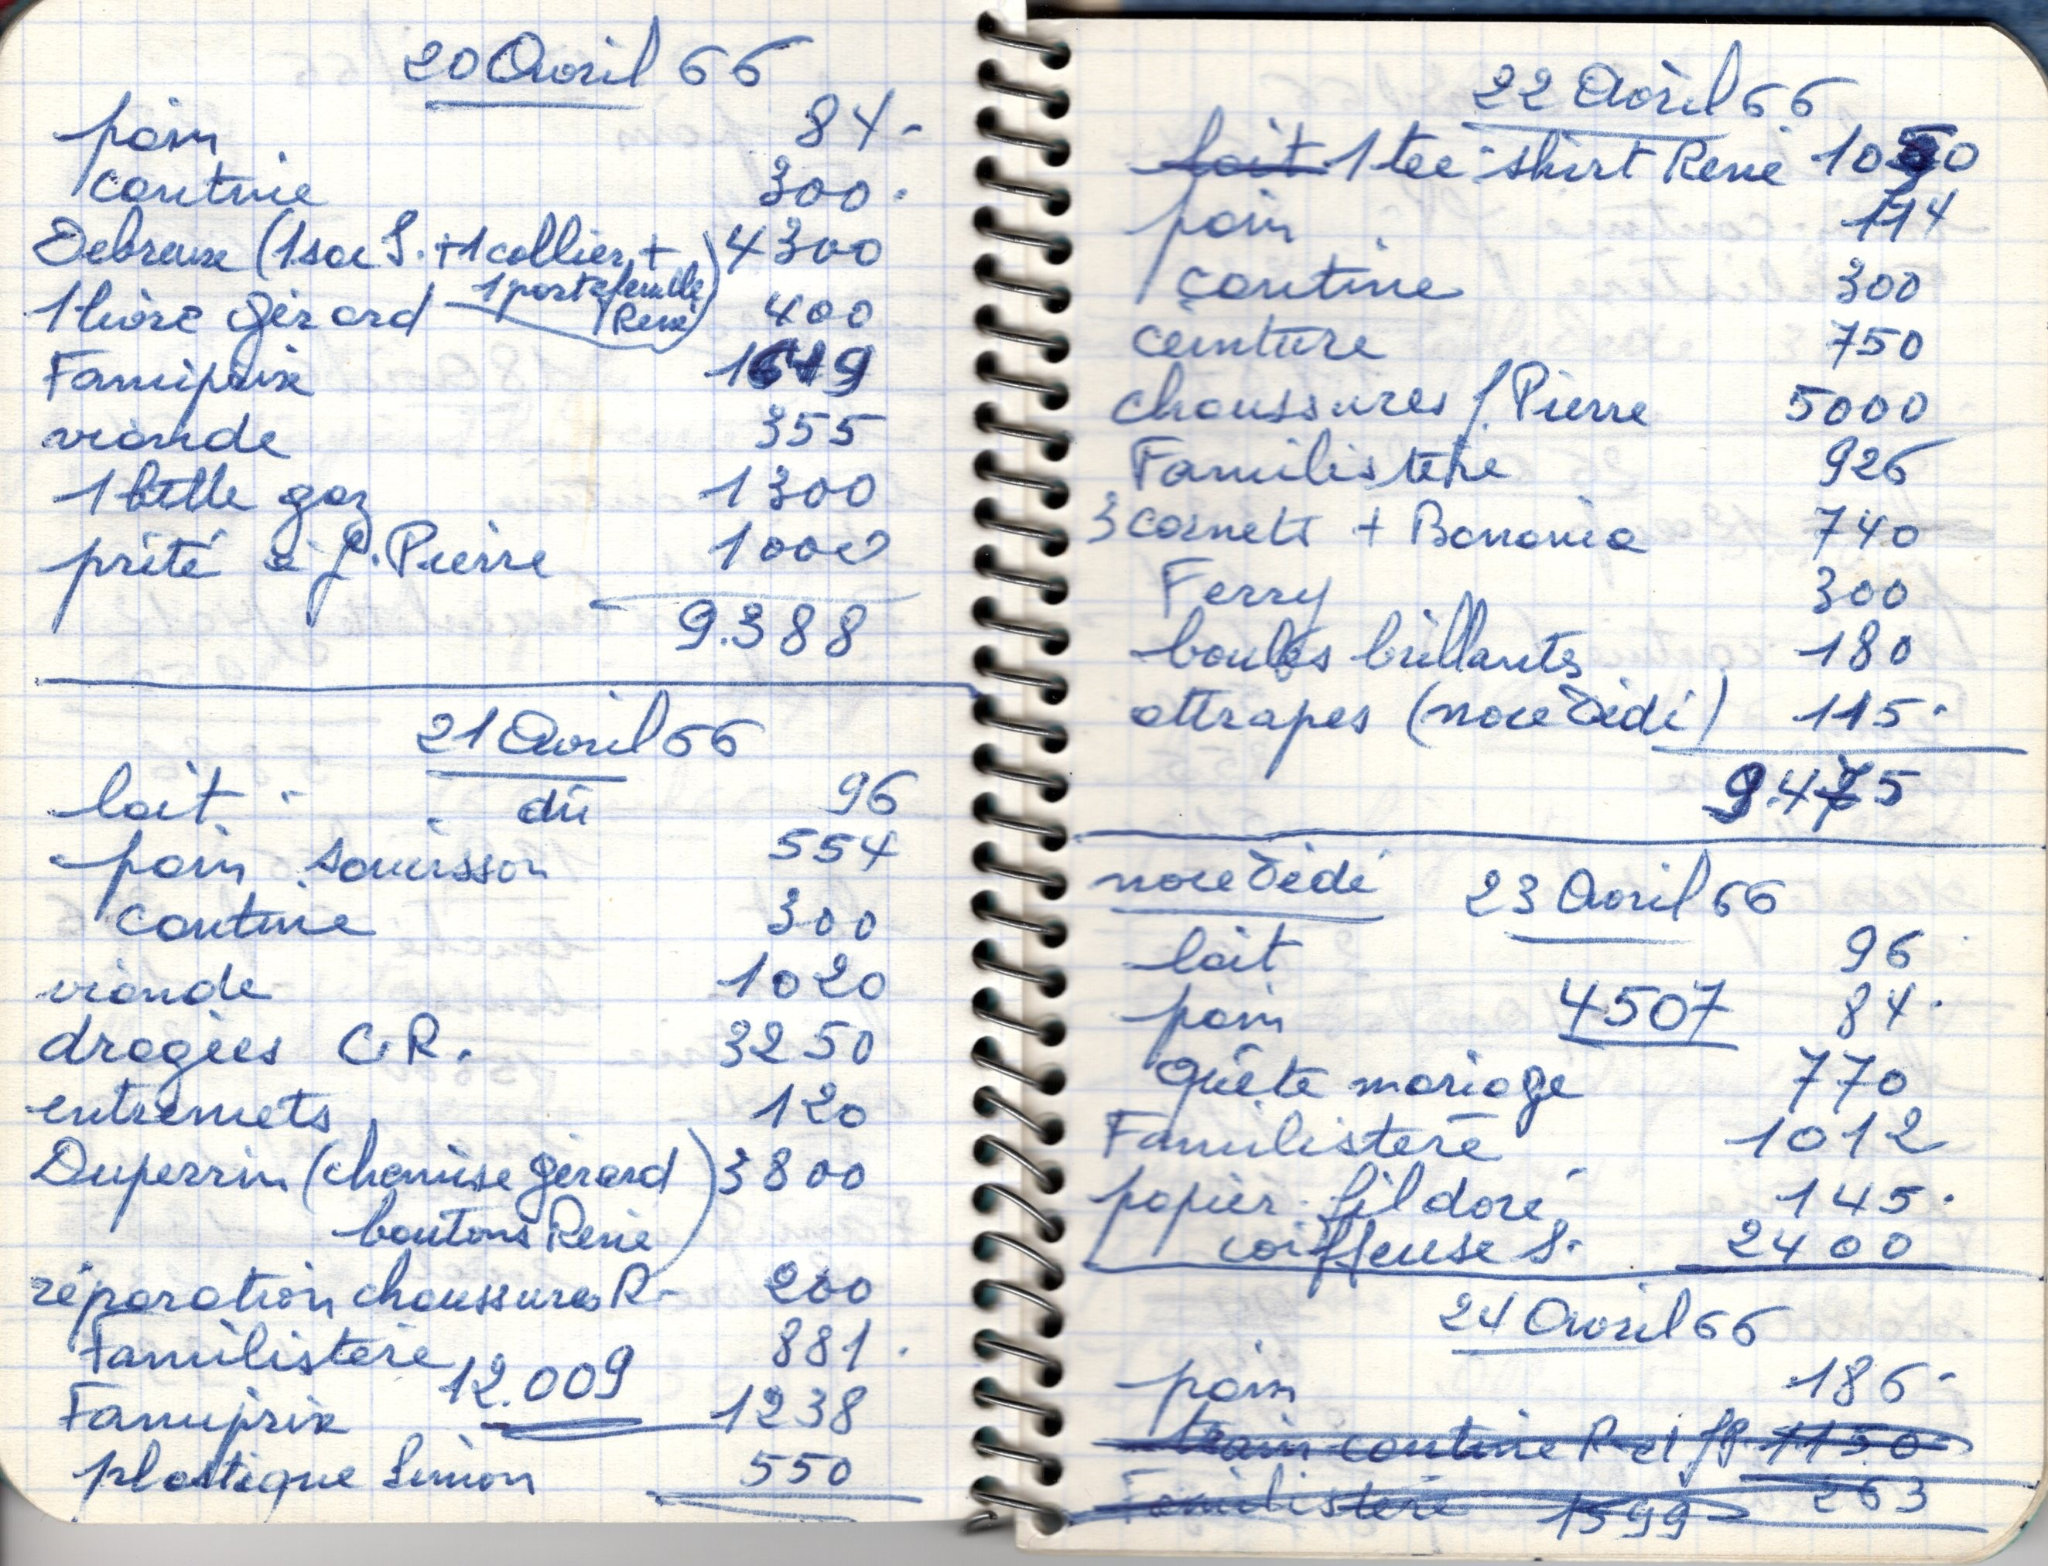 20 Avril 66
pain 84-
cantine 300.
Debreux (1 sac S. + 1 collier + 4300
1 portefeuille René)
1 livre Gérard 400
Famiprix 1649
viande 355
1 btlle gaz 1300
prêté à J. Pierre 1000
9.388
21 Avril 66
lait dû 96
pain saucisson 554
cantine 300
viande 1020
dragées C.R. 3250
entremets 120
Duperrin (chemise Gérard 3800
boutons René)
réparation chaussures R- 200
Familistère 881.
12.009
Famiprix 1238
plastique Simon 550
22 Avril 66
lait 1 tee-shirt René 1050
pain 114
cantine 300
ceinture 750
chaussures J. Pierre 5000
Familistère 926
3 cornets + Banania 740
Ferry 300
boules brillantes 180
attrapes (noce Dédé) 115.
9.475
noce Dédé 23 Avril 66
lait 96
pain 4507 84.
Quête mariage 770
Familistère 1012
papier fil doré 145.
coiffeuse S. 2400
24 Avril 66
pain 186-
train cantine R et JP 1150
Familistère 1599 263